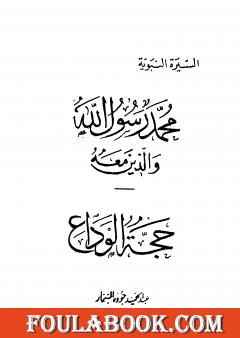 السيرة النبوية
محمد رسول الله
والذين معه
حجة الوداع
عبد الحميد جوده السحار
FOULABOOK.COM